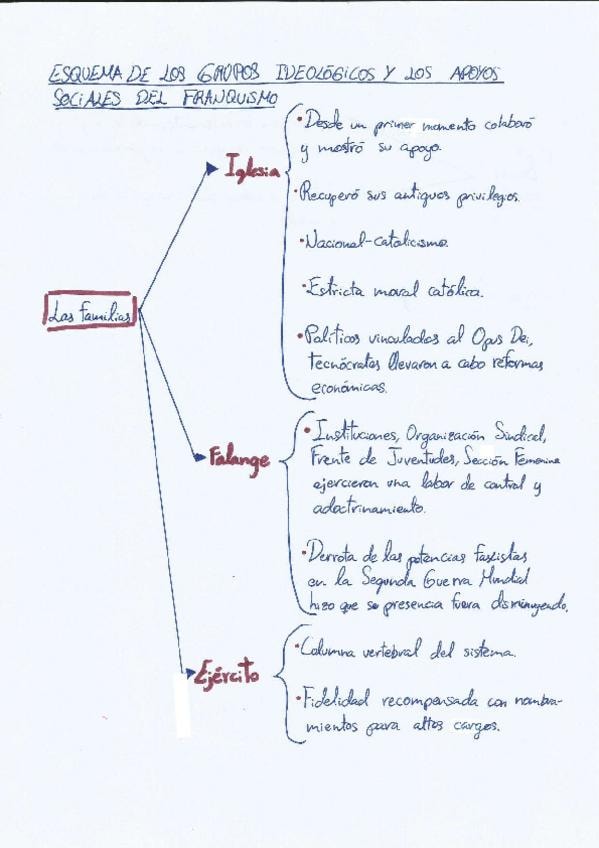 ESQUEMA DE LOS GRUPOS IDEOLÓGICOS Y LOS APOYOS
SOCIALES DEL FRANQUISMO
Las familias
Iglesia
• Desde un primer momento colaboró
y mostró su apoyo.
• Recuperó sus antiguos privilegios.
• Nacional-catolicismo.
• Estricta moral católica.
• Políticos vinculados al Opus Dei,
tecnócratas llevaron a cabo reformas
económicas.
Falange
• Instituciones, Organización Sindical,
Frente de Juventudes, Sección Femenina
ejercieron una labor de control y
adoctrinamiento.
• Derrota de las potencias fascistas
en la Segunda Guerra Mundial
hizo que su presencia fuera disminuyendo.
Ejército
• Columna vertebral del sistema.
• Fidelidad recompensada con nombra-
mientos para altos cargos.